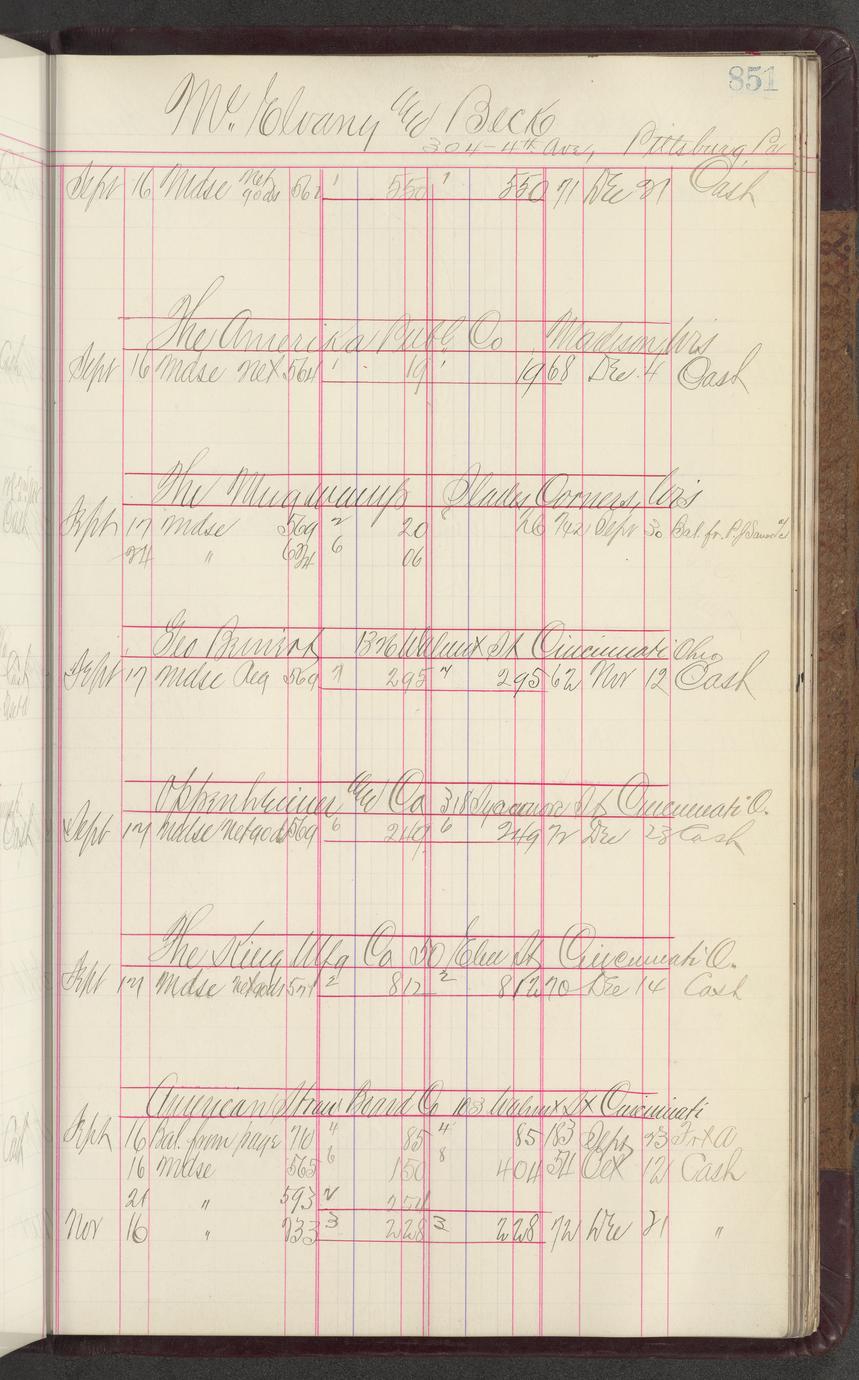 851
Mc Elvany and Beck
304-4th Ave, Pittsburg, Pa
Sept 16 Mdse net goods 562 1 550 1 550 71 Dec 21 Cash
The Amerika Publ Co Madison, Wis
Sept 16 Mdse Net 564 1 19 1 19 68 Dec 4 Cash
The Mugwump Corners, Wis
Sept 17 Mdse 569 2 20 26 742 Sept 30 Bal. fr. P.J.
24 " 624 6 06
Geo 1326 Walnut St Cincinnati Ohio
Sept 17 Mdse 569 7 295 7 295 62 Nov 12 Cash
Oppenheimer and Co 318 Sycamore St Cincinnati O.
Sept 17 Mdse Net gods 569 6 249 6 249 72 Dec 23 Cash
The King Mfg Co 50 Elm St Cincinnati O.
Sept 17 Mdse Net gods 571 2 812 2 812 70 Dec 14 Cash
American Straw Board Co 103 Walnut St Cincinnati
Sept 16 Bal. from page 76 4 85 4 85 183 Sept 23
16 Mdse 565 6 150 8 404 51 Oct 12 Cash
21 " 593 2 254
Nov 16 " 733 3 228 3 228 72 Dec 21 "